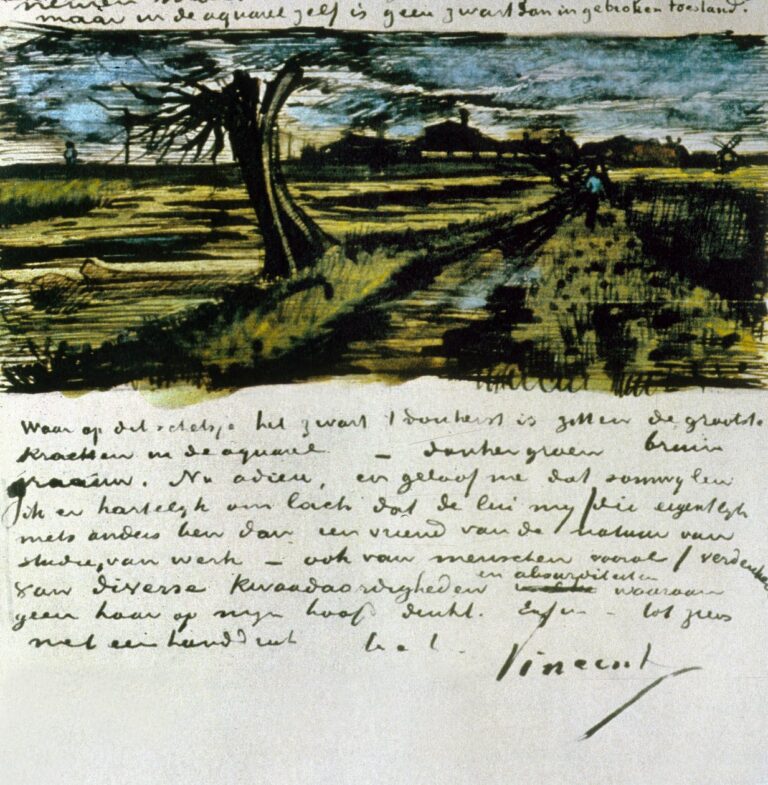 maar in de aquarel zelf is geen zwart dan in gebroken toestand.
Waar op dit schetsje het zwart 't donkerst is zitten de grootste
krachten in de aquarel – donkergroen bruin
graauw. Nu adieu, en geloof me dat somwylen
ik er hartelyk om lach dat de lui my / die eigentlyk
niets anders ben dan een vriend van de natuur van
studie, van werk – ook van menschen vooral / verdenken
van diverse kwaadaardigheden en absurditeiten waaraan
geen haar op myn hoofd denkt. Enfin – tot ziens
met een handdruk
Vincent